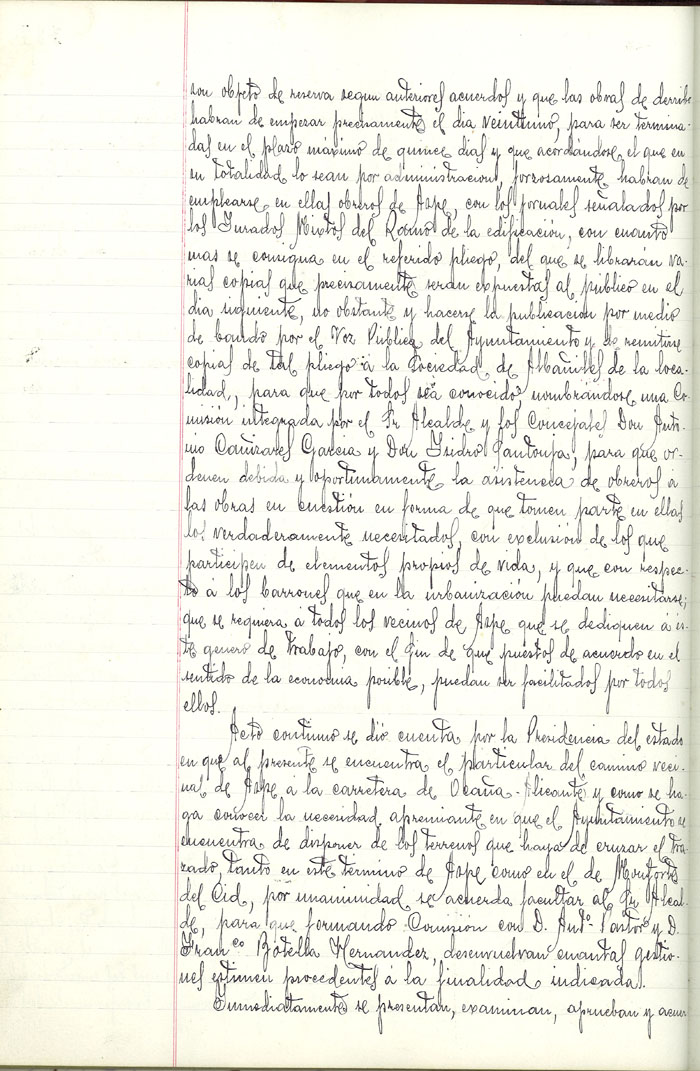 son objeto de reserva segun anteriores acuerdos y que las obras de derribo
habran de empezar precisamente el dia veintiuno, para ser termina-
das en el plazo máximo de quince dias y que acordándose el que en
su totalidad lo sean por administracion, forzosamente habran de
emplearse en ellas obreros de Aspe, con los jornales señalados por
los Jurados Mixtos del Ramo de la edificación, con cuanto
mas se consigna en el referido pliego, del que se librarán va-
rias copias que precisamente seran expuestas al público en el
dia siguiente, no obstante y hacerse la publicacion por medio
de bando por el Voz Pública del Ayuntamiento y remitirse
copias de tal pliego á la Sociedad de Albañiles de la loca-
lidad, para que por todos sea conocido, nombrándose una Co-
misión integrada por el Sr Alcalde y los Concejales Don Anto-
nio Cañizares Garcia y Don Isidro Pantoja, para que or-
denen debida y oportunamente la asistencia de obreros á
las obras en cuestión en forma de que tomen parte en ellas
los verdaderamente necesitados, con exclusión de los que
participen de elementos propios de vida, y que con respec-
to á los barrones que en la urbanización puedan necesitarse,
que se requiera á todos los vecinos de Aspe que se dediquen á es-
te genero de trabajo, con el fin de que puestos de acuerdo en el
sentido de la economia posible, puedan ser facilitados por todos
ellos.
Acto continuo se dió cuenta por la Presidencia del estado
en que al presente se encuentra el particular del camino veci-
nal de Aspe á la carretera de Ocaña-Alicante y como se ha-
ga conocer la necesidad apremiante en que el Ayuntamiento se
encuentra de disponer de los terrenos que haya de cruzar el tra-
zado, tanto en este término de Aspe como en el de Monforte
del Cid, por unanimidad se acuerda facultar al Sr. Alcal-
de, para que formando Comision con D. Antº. Pastor y D.
Franco Botella Hernandez, desenvuelvan cuantas gestio-
nes estimen procedentes á la finalidad indicada.
Inmediatamente se presentan, examinan, aprueban y acuer